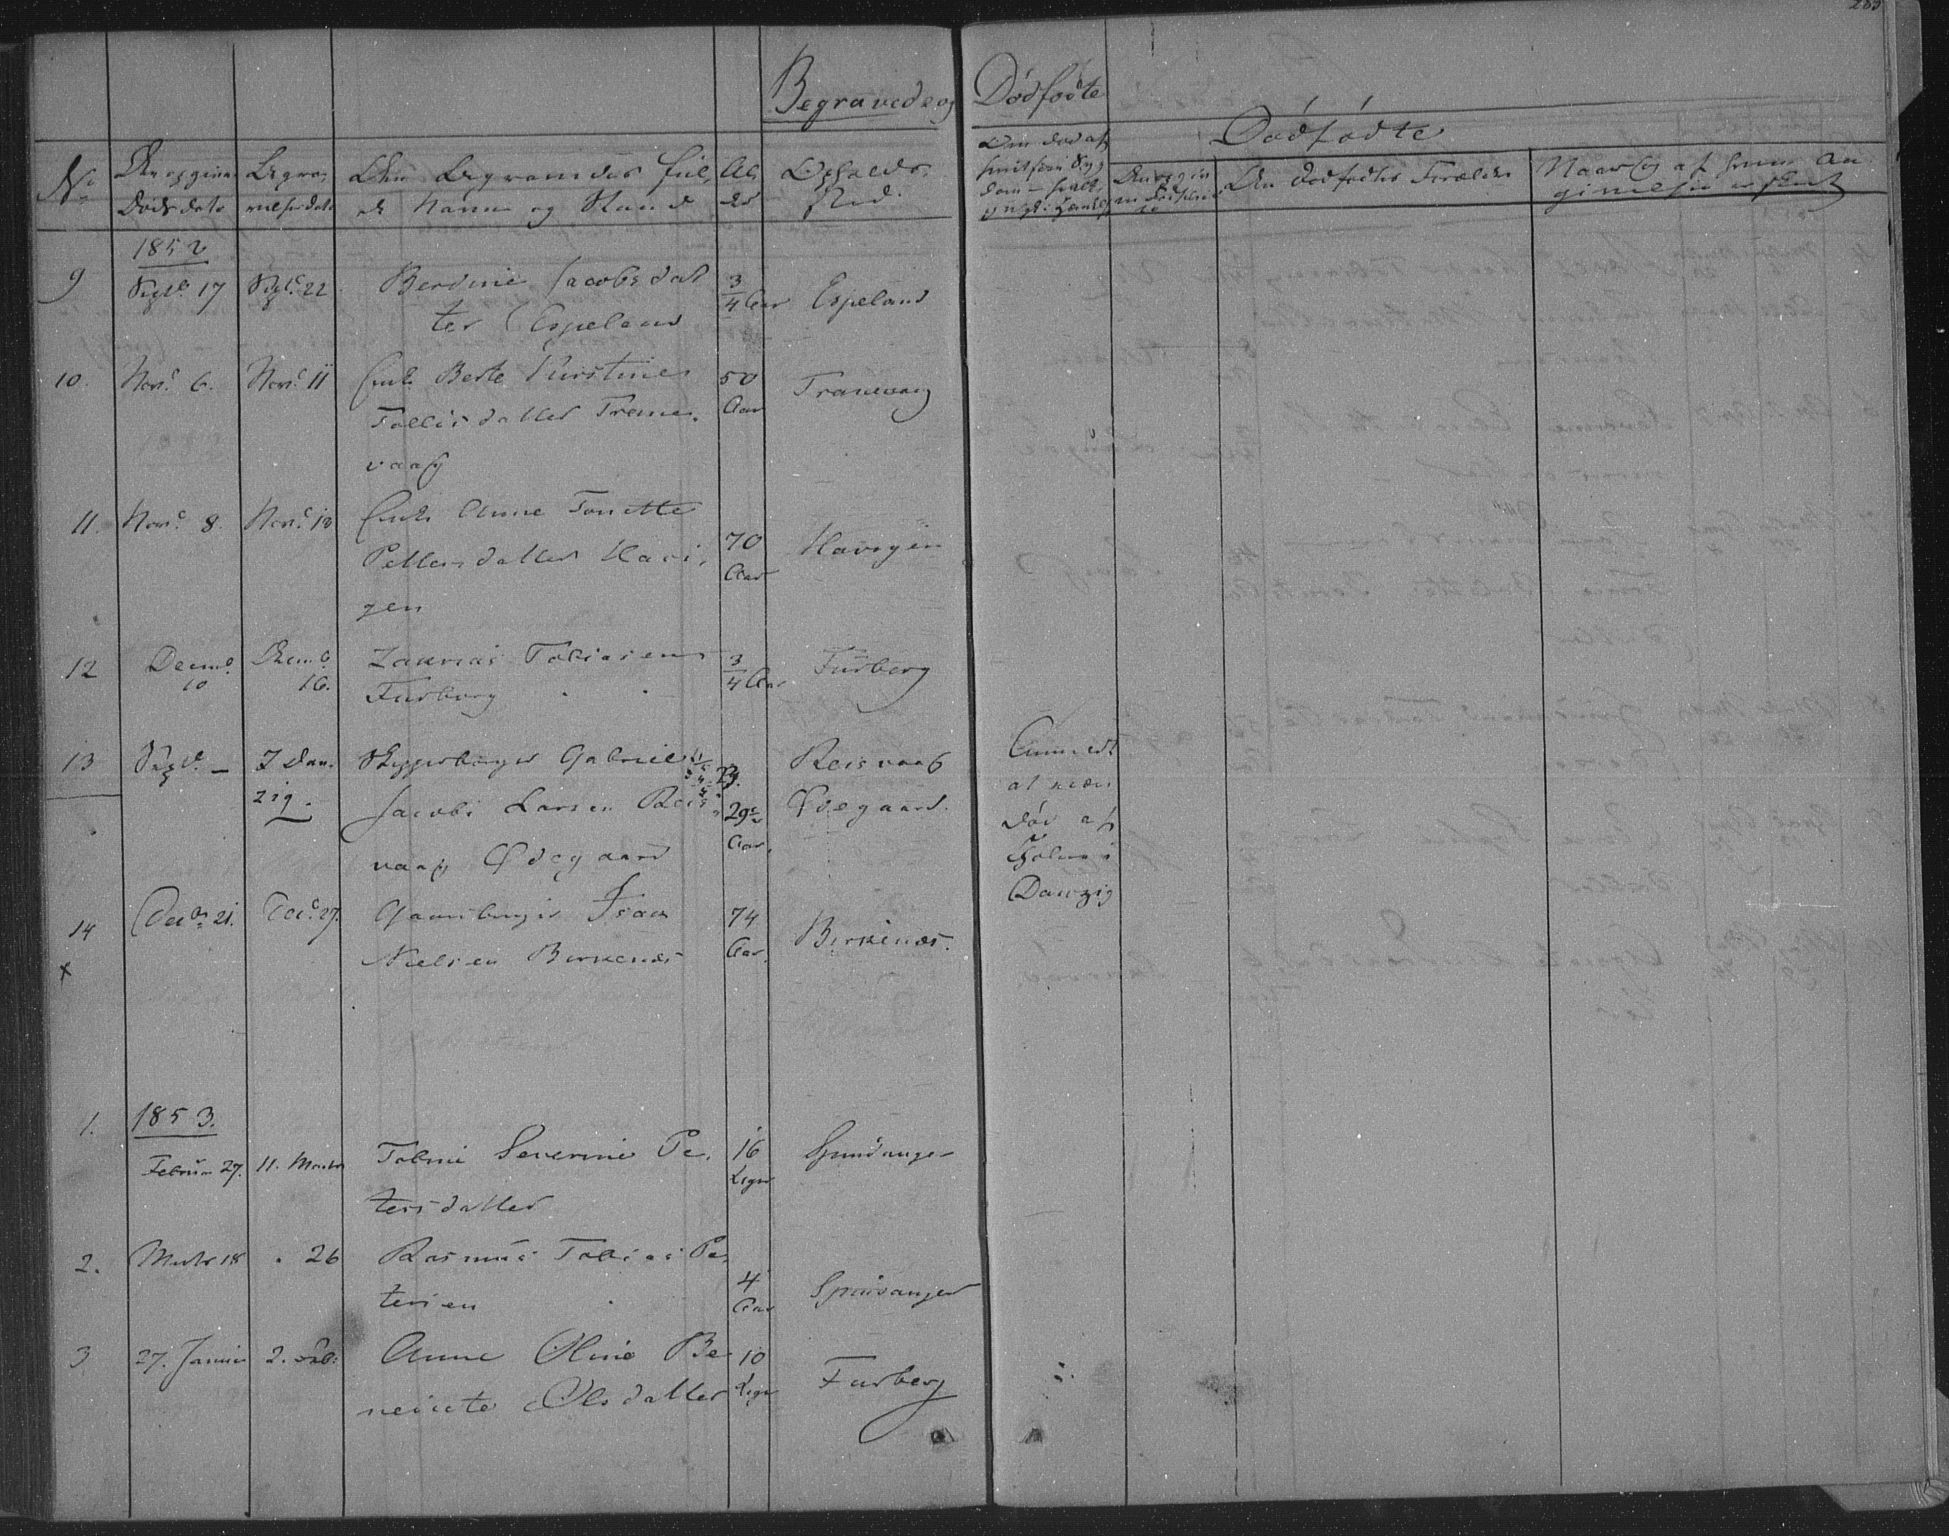 283
Begravede og Dødfødte
Dødfødte
No
Den opgivne
Døds dato
Begra-
velses dato
Den Begravedes ful-
de Navn og Stand
Al-
der
Opholds-
sted.
Om død af
Den dødfødtes Forældre
Naar og af hvem An-
1852
9
Septb. 17
Septb. 22
Berdine Jacobsdat
ter Espeland
3/4 Aar
Espeland
10.
Novb. 6.
Novb. 11
Enke Berte Kirstine
Tollisdatter Trane-
vaag
50
Aar
Tranevaag
11.
Novb. 8.
Novb. 13
Enke Anne Tonette
Pettersdatter Havi-
gen
70
Aar
Havigen
12
Decemb.
10
Decemb.
16.
Zakrias Tobiasen
Furberg
3/4 Aar
Furberg
13
Septb. –
I Dan-
zig.
Gabriel
Jacob Larsen Reis-
vaag Ødegaard
29
Aar.
Reisvaag
Ødegaard.
Anmeldt
at være
død af
Cholera i
Danzig
14
x
Decbr. 21.
Decb. 27.
Gaardbruger Isac
Nielsen Birkenæs
74
Aar.
Birkenæs.
1853.
1.
Februar 27.
11. Marts
Tobine Severine Pe-
tersdatter
16
Uger
Spindanger
2.
Marts 18
" 26
Rasmus Tobias Pe-
tersen
4
Aar
Spindanger
3
27. Januar
2. Feb:
Anne Oline Be-
Olsdatter
10
Uger
Furberg